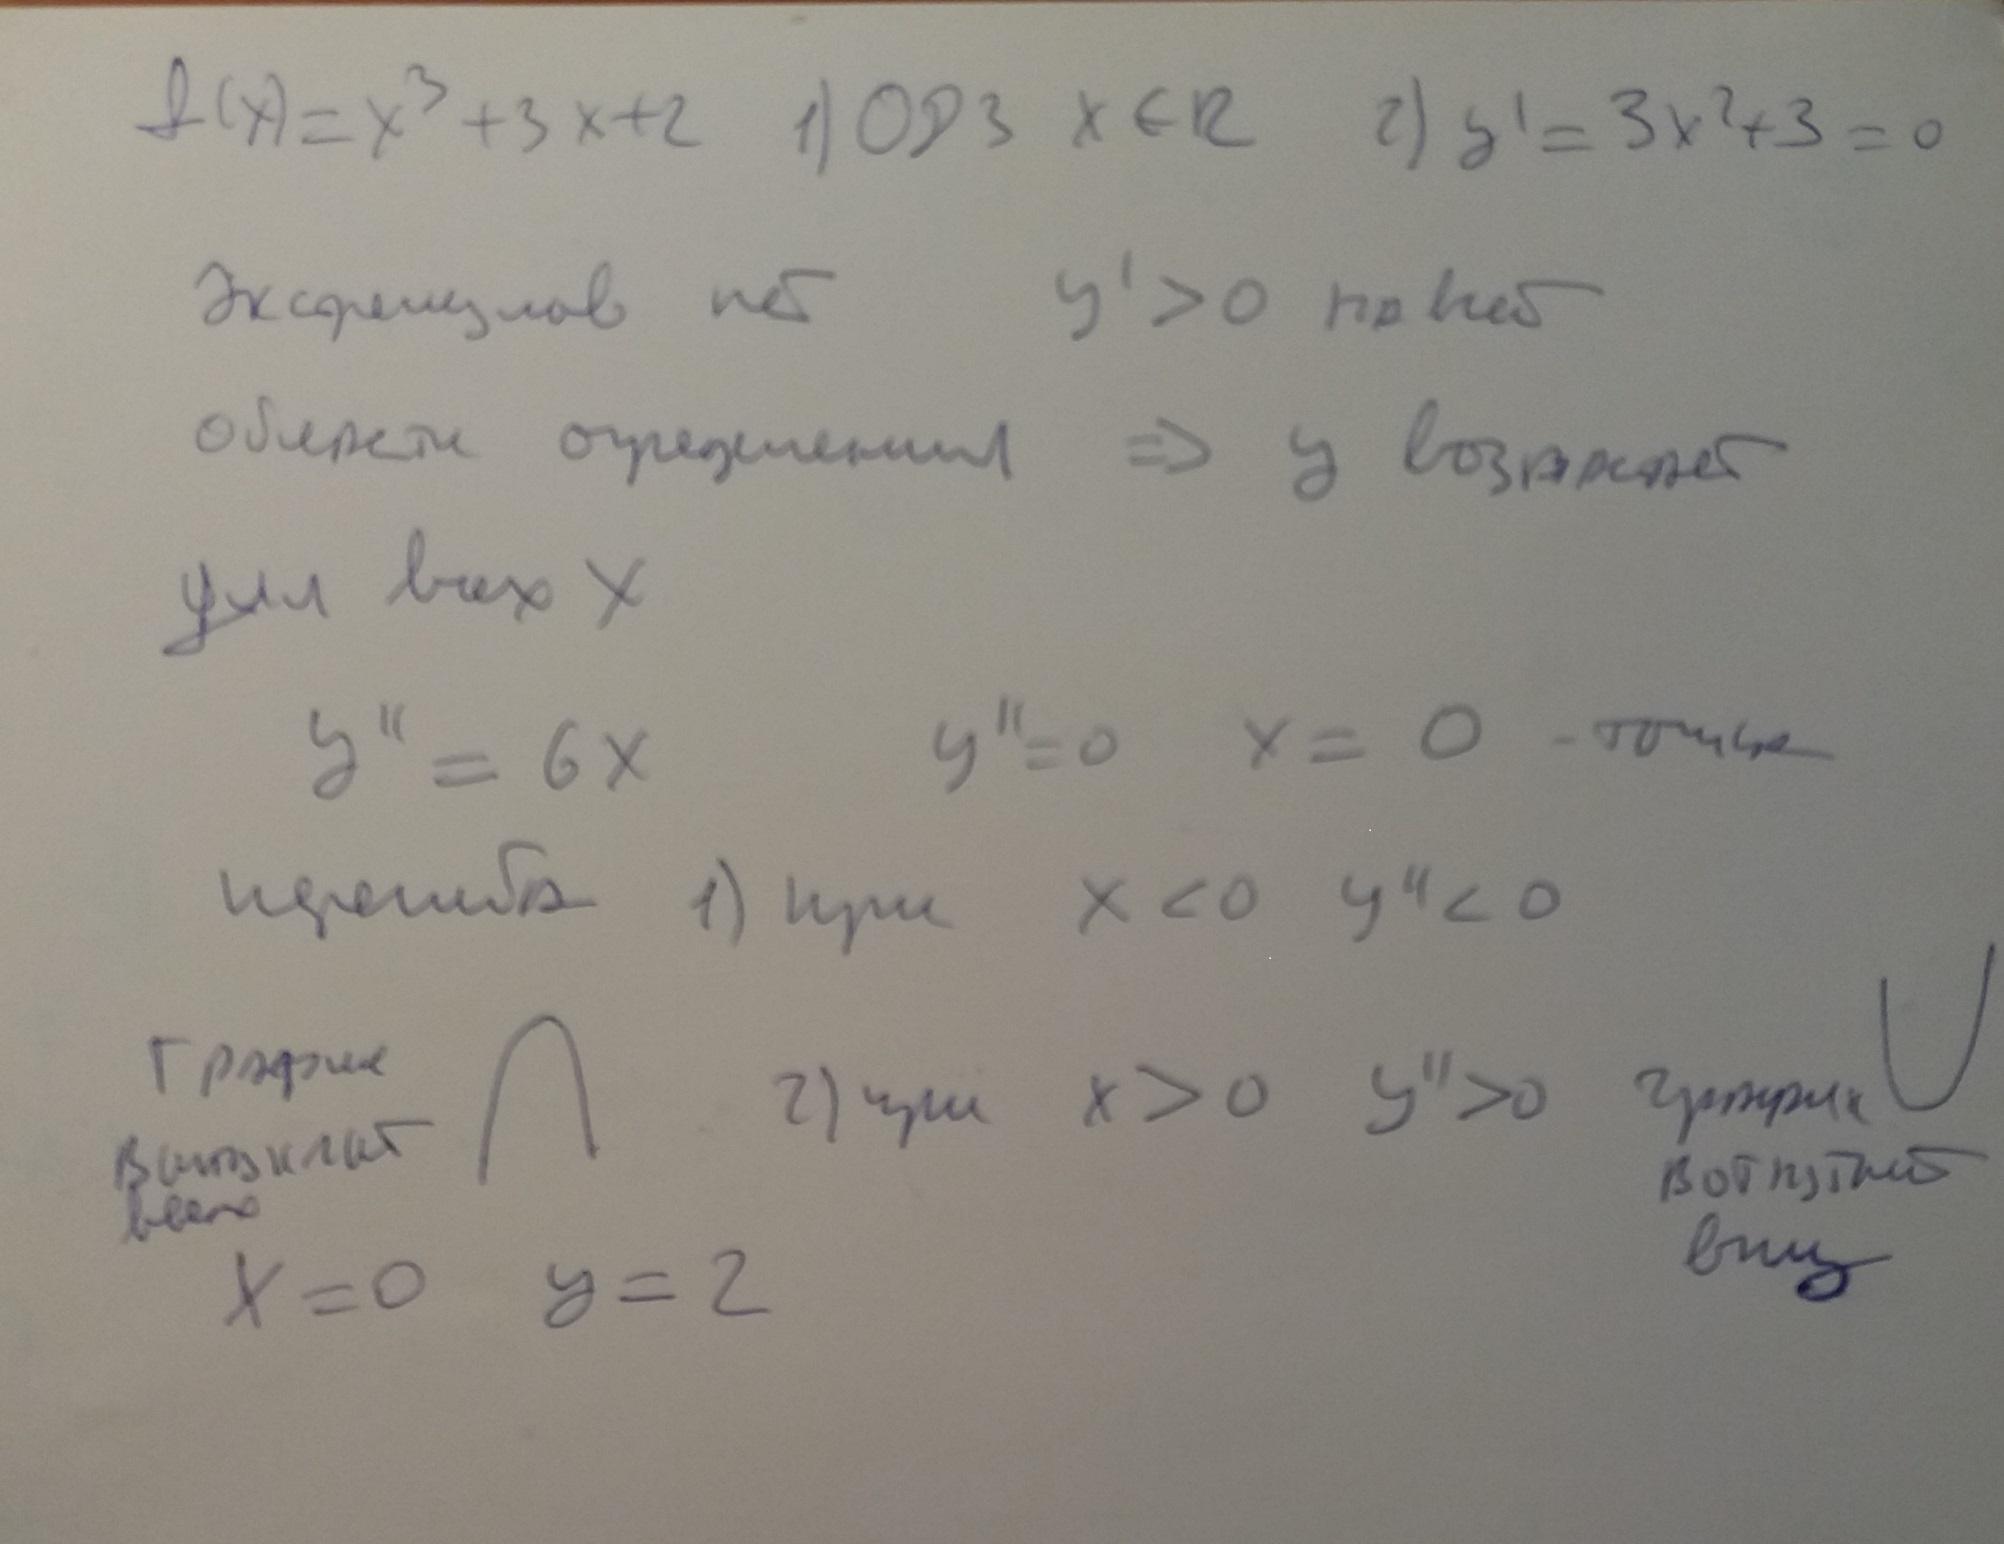 f(x)=x³+3x+2 1) ОДЗ x∈R 2) y'=3x²+3=0
Экстремумов нет y'>0 на всей
области определения => y возрастает
для всех X
y''=6x y''=0 x=0 - точка
перегиба 1) при x<0 y''<0
График 2) при x>0 y''>0 график
выпуклый вогнутый
вверх вниз
X=0 y=2